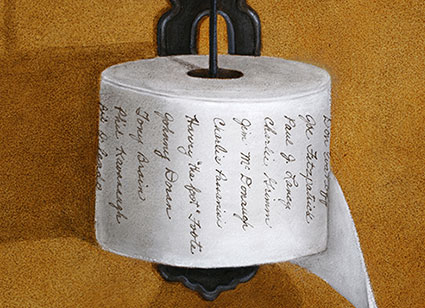 Don
Joe Fitzpatrick
Paul J. Laney
Charlie Grimm
Jim McDonough
Charlie
Harry "the fox" Foote
Johnny Doran
Tony Brain
Phil Kavanagh